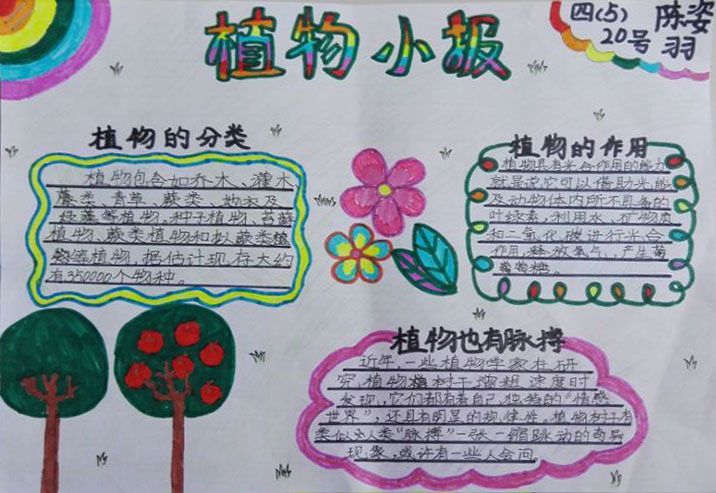 植物小报
四(5)
20号
陈姿羽
植物的分类
植物包含如乔木、灌木、
藤类、青草、蕨类、地衣及
绿藻等植物。种子植物、苔藓
植物、蕨类植物和拟蕨类植
物等植物，据估计现存大约
有350000个物种。
植物的作用
植物具有光合作用的能力
就是说它可以借助光能
及动物体内所不具备的
叶绿素，利用水、矿物质
和二氧化碳进行光合
作用，释放氧气，产生葡
萄糖。
植物也有脉搏
近年，一些植物学家在研
究植物树干增粗速度时
发现，它们都有着自己独特的“情感
世界”，还具有明显的规律性。植物树干有
类似人类“脉搏”一张一缩跳动的奇异
现象，或许有一些人会问。